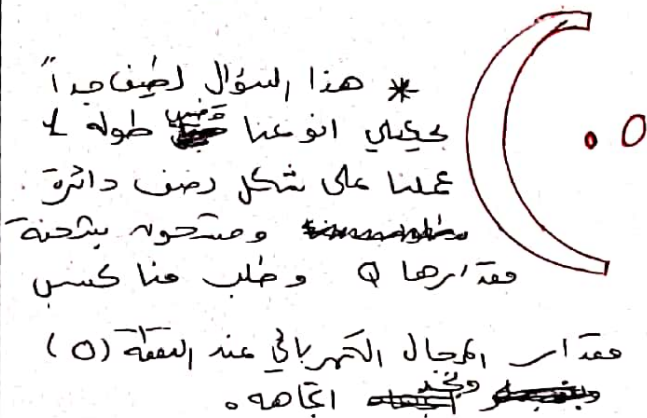 * هذا السؤال لطيف جداً
بحكيلي انو عنا قضيب طوله L
عملنا على شكل نصف دائرة
ومشحون بشحنة
مقدارها Q وطلب منا كسب
مقدار المجال الكهربائي عند النقطة (O)
ونجد اتجاهه.
O